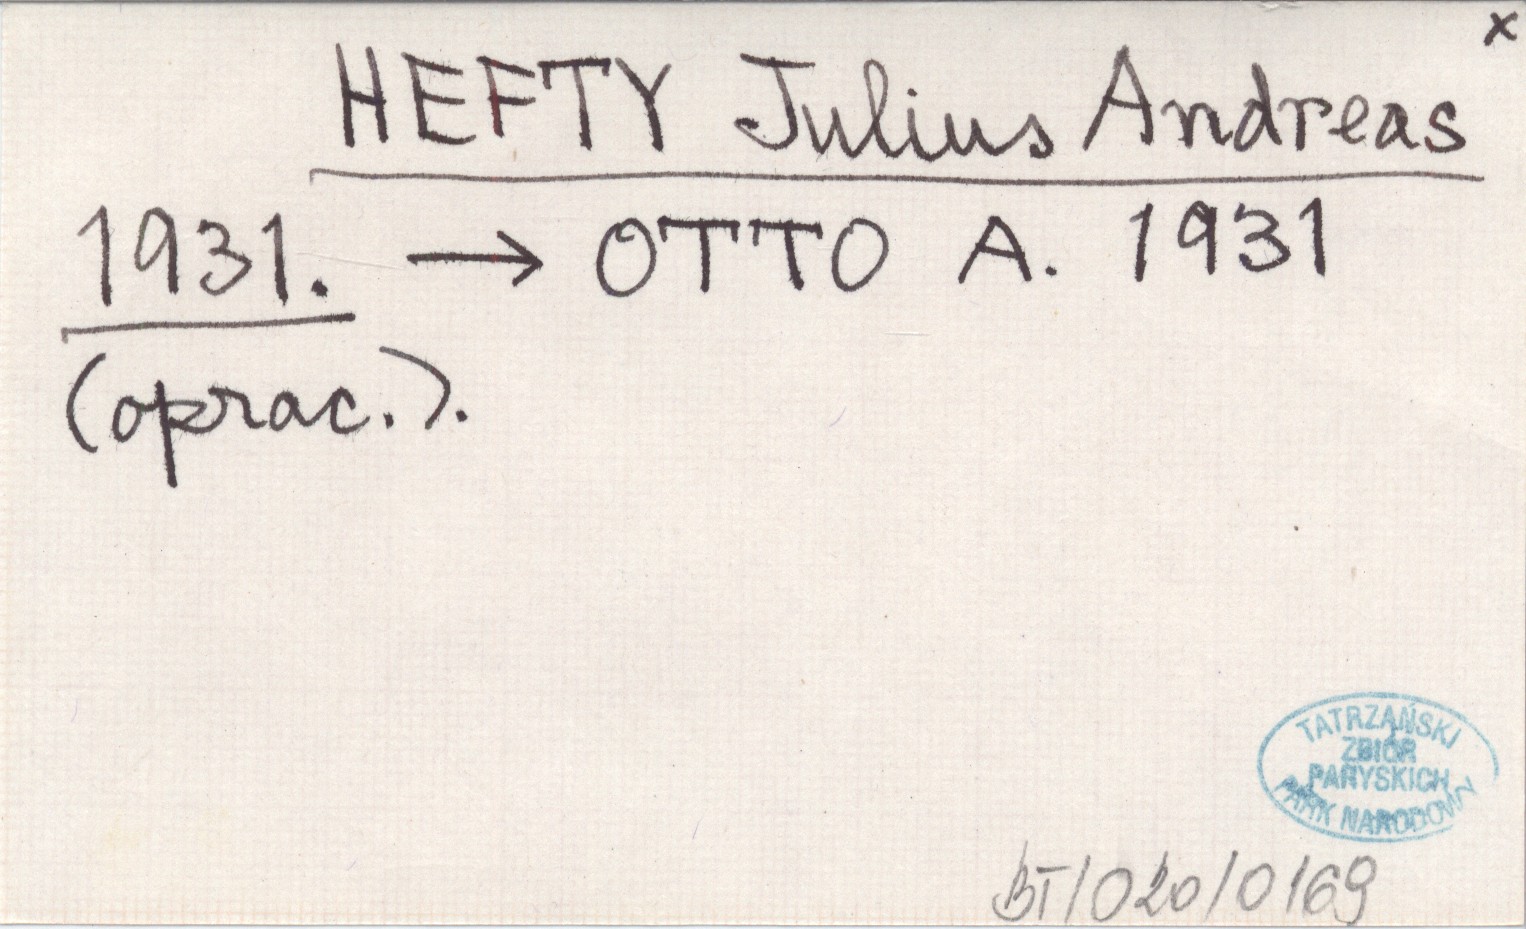 x
HEFTY Julius Andreas
1931. → OTTO A. 1931
(oprac.).
TATRZAŃSKI
ZBIÓR
PARYSKICH
PARK NARODOWY
BT/020/0169